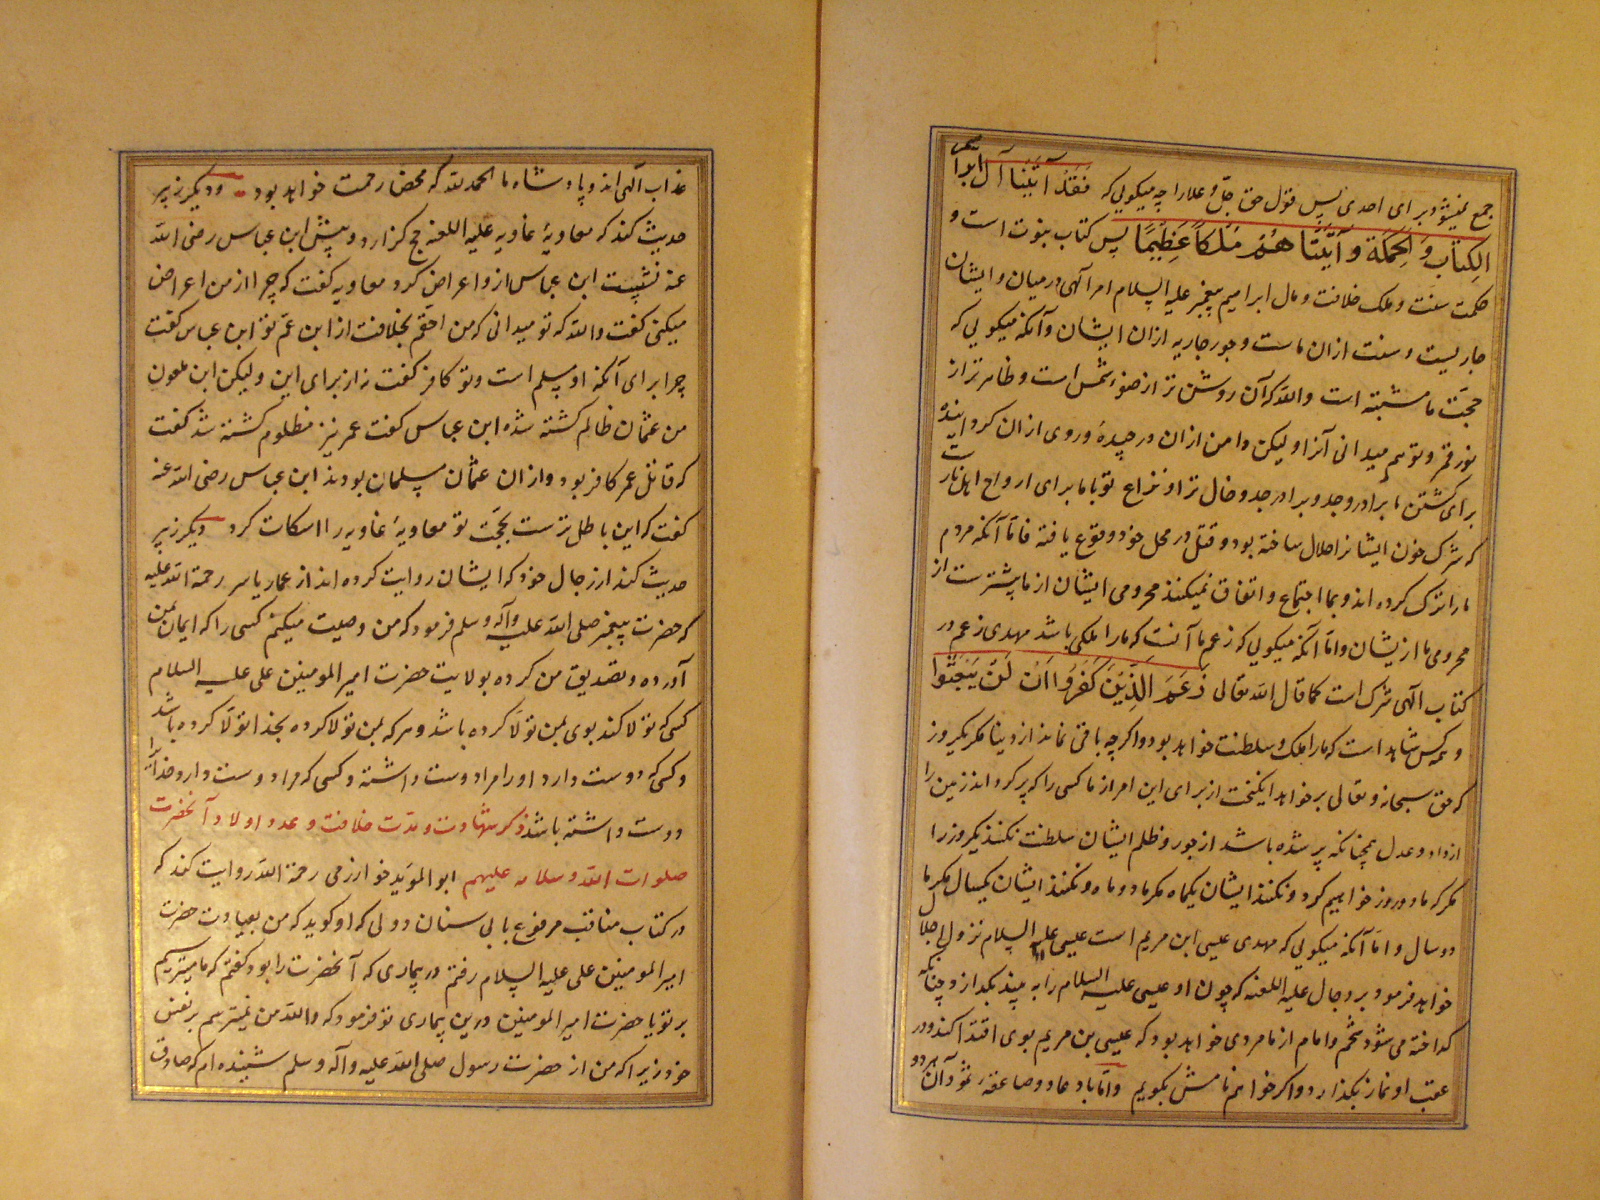 جمع نمیشود برای احدی پس قول حق جل و علا را چه میکویی که فَقَدْ آتَيْنَا آلَ ابراهیم
الكِتابَ وَالحِكمَةَ وَآتَيْنَا هُمْ مُلْكًا عَظِيْمًا پس کتاب نبوت است و
حکمت سنت و ملک خلافت و مال ابراهیم پیغمبر علیه السلام امر الهی در میان و ایشان
جاریست و سنت ازان ماست و جور جاریه ازان ایشان و آنکه میکویی که
حجّت ما مشتبه است واللّه که آن روشن تر از ضوء شمس است و ظاهرتر از
نور قمر و تو هم میدانی آنرا و لیکن دامن ازان در چیدهٔ و روی ازان کردانیده
برای کشتن ما برادر و جد و برادر جد و خال ترا و نزاع تو با ما برای ارواح اهل نارست
که شرک خون ایشانرا حلال ساخته بود و قتل در محل خود وقوع یافته فامّا آنکه مردم
ما را ترک کرده اند و بما اجتماع و اتفاق نمیکنند محرومی ایشان از ما بیشترست از
محرومی ما ازیشان و امّا آنکه میکویی که زعم ما آنست که ما را ملکی باشد مهدی زعم در
کتاب الهی شرک است کما قال اللّه تعالی زَعَمَ الَّذِيْنَ كَفَرُوا اَنْ لَنْ يُبْعَثُوا
و همه کس شاهد است که ما را ملک و سلطنت خواهد بود و اکرچه باقی نماند از دنیا مکر یکروز
که حق سبحانه و تعالی بر خواهد انکیخت از برای این امر از ما کسی را که پر کرداند زمین را
از داد و عدل همچنانکه پر شده باشد از جور و ظلم ایشان سلطنت نکنند یکروز را
مکر که ما دو روز خواهیم کرد و نکنند ایشان یکماه مکر ما دو ماه و نکنند ایشان یکسال مکر ما
دو سال و امّا آنکه میکویی که مهدی عیسی ابن مریم است عیسی علیه السلام نزول اجلال
خواهد فرمود بر دجال علیه اللعنه که چون او عیسی علیه السلام را به بیند بکدازد چنانکه
کداخته می شود شحم و امام از ما مردی خواهد بود که عیسی بن مریم بوی اقتدا کند و در
عقب او نماز بکذارد و اکر خواهم نامش بکویم و امّا باد عاد و صاعقهٔ ثمود آن هر دو
عذاب الهی اند و پادشاه ما الحمد للّه که محض رحمت خواهد بود و دیکر زبیر
حدیث کند که معاویهٔ غاویه علیه اللعنه حج کزارد و پیش ابن عباس رضی اللّه
عنه نشست ابن عباس ازو اعراض کرد معاویه کفت که چرا از من اعراض
میکنی کفت واللّه که تو میدانی که من احقّم بخلافت از ابن عمّ تو ابن عباس کفت
چرا برای آنکه او مسلم است و تو کافر کفت نه از برای این و لیکن ابن ملعون
من عثمان ظالم کشته شده ابن عباس کفت عمر نیز مظلوم کشته شد کفت
که قاتل عمر کافر بود و ازان عثمان مسلمان بودند ابن عباس رضی اللّه عنه
کفت که این باطل ترست بحجّت تو معاویهٔ غاویه را اسکات کرد دیکر زبیر
حدیث کند از رجال خود که ایشان روایت کرده اند از عمار یاسر رحمة اللّه علیه
که حضرت پیغمبر صلی اللّه علیه وآله وسلم فرمود که من وصیت میکنم کسی را که ایمان بمن
آورده و تصدیق من کرده بولایت حضرت امیر المومنین علی علیه السلام
کسی که تولا کند بوی بمن تولّا کرده باشد و هر که بمن تولا کرده بخدا تولّا کرده باشد
و کسی که دوست دارد او را مرا دوست داشته و کسی که مرا دوست دارد خدایرا
دوست داشته باشد ذکر شهادت و مدّت خلافت و عدد اولاد آنحضرت
صلوات اللّه و سلامه علیهم ابو المؤید خوارزمی رحمة اللّه روایت کند که
در کتاب مناقب مرفوع بابی سنان دولی که او کوید که من بعیادت حضرت
امیر المومنین علی علیه السلام رفتم در بیماری که آنحضرت را بود کفتم که ما میترسیم
بر تو یا حضرت امیر المومنین درین بیماری تو فرمود که واللّه من نمیترسم بر نفس
خود زیرا که من از حضرت رسول صلی اللّه علیه وآله وسلم شنیده ام که صادق